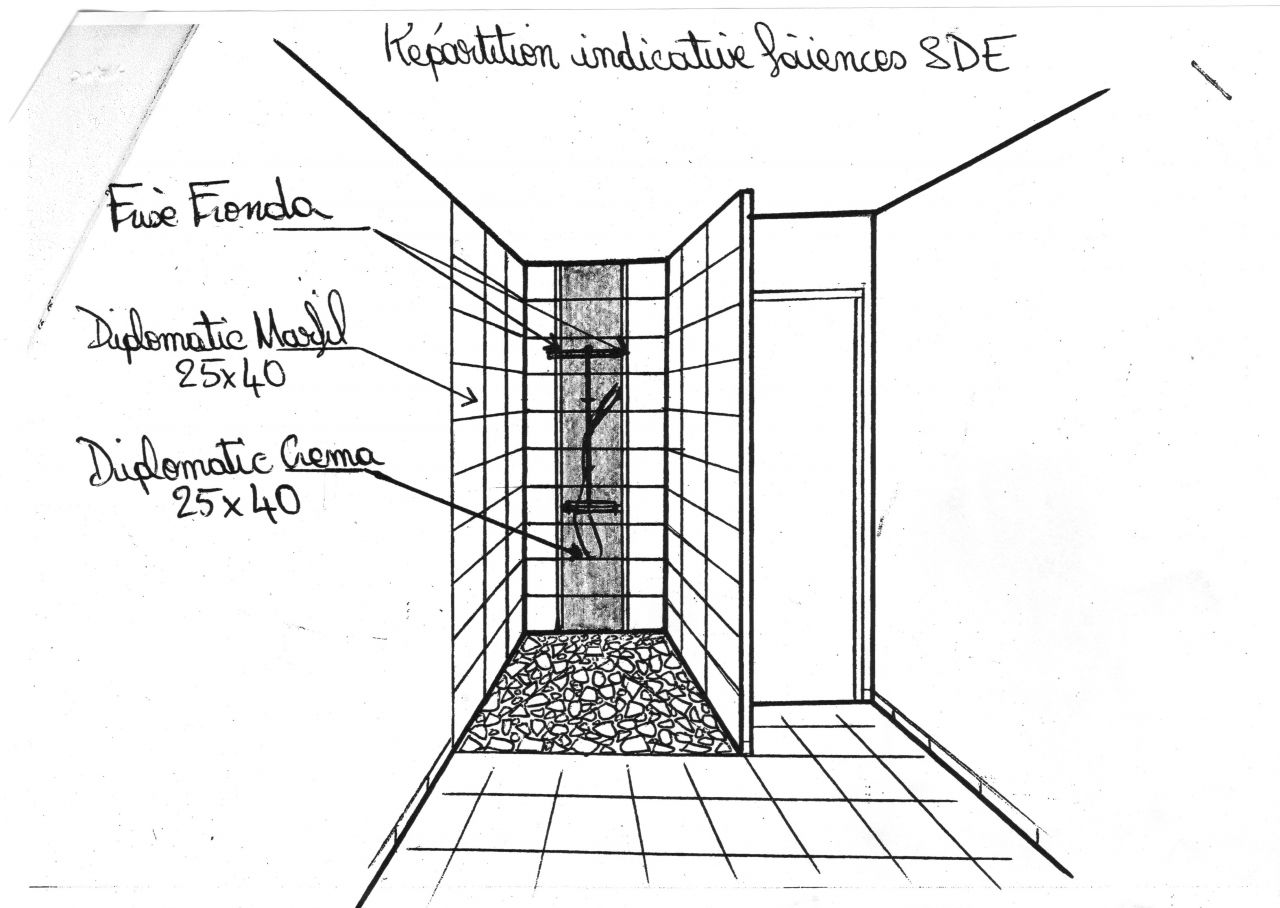 Répartition indicative faïences SDE
Frise Fronda
Diplomatic Marfil
25x40
Diplomatic Crema
25x40